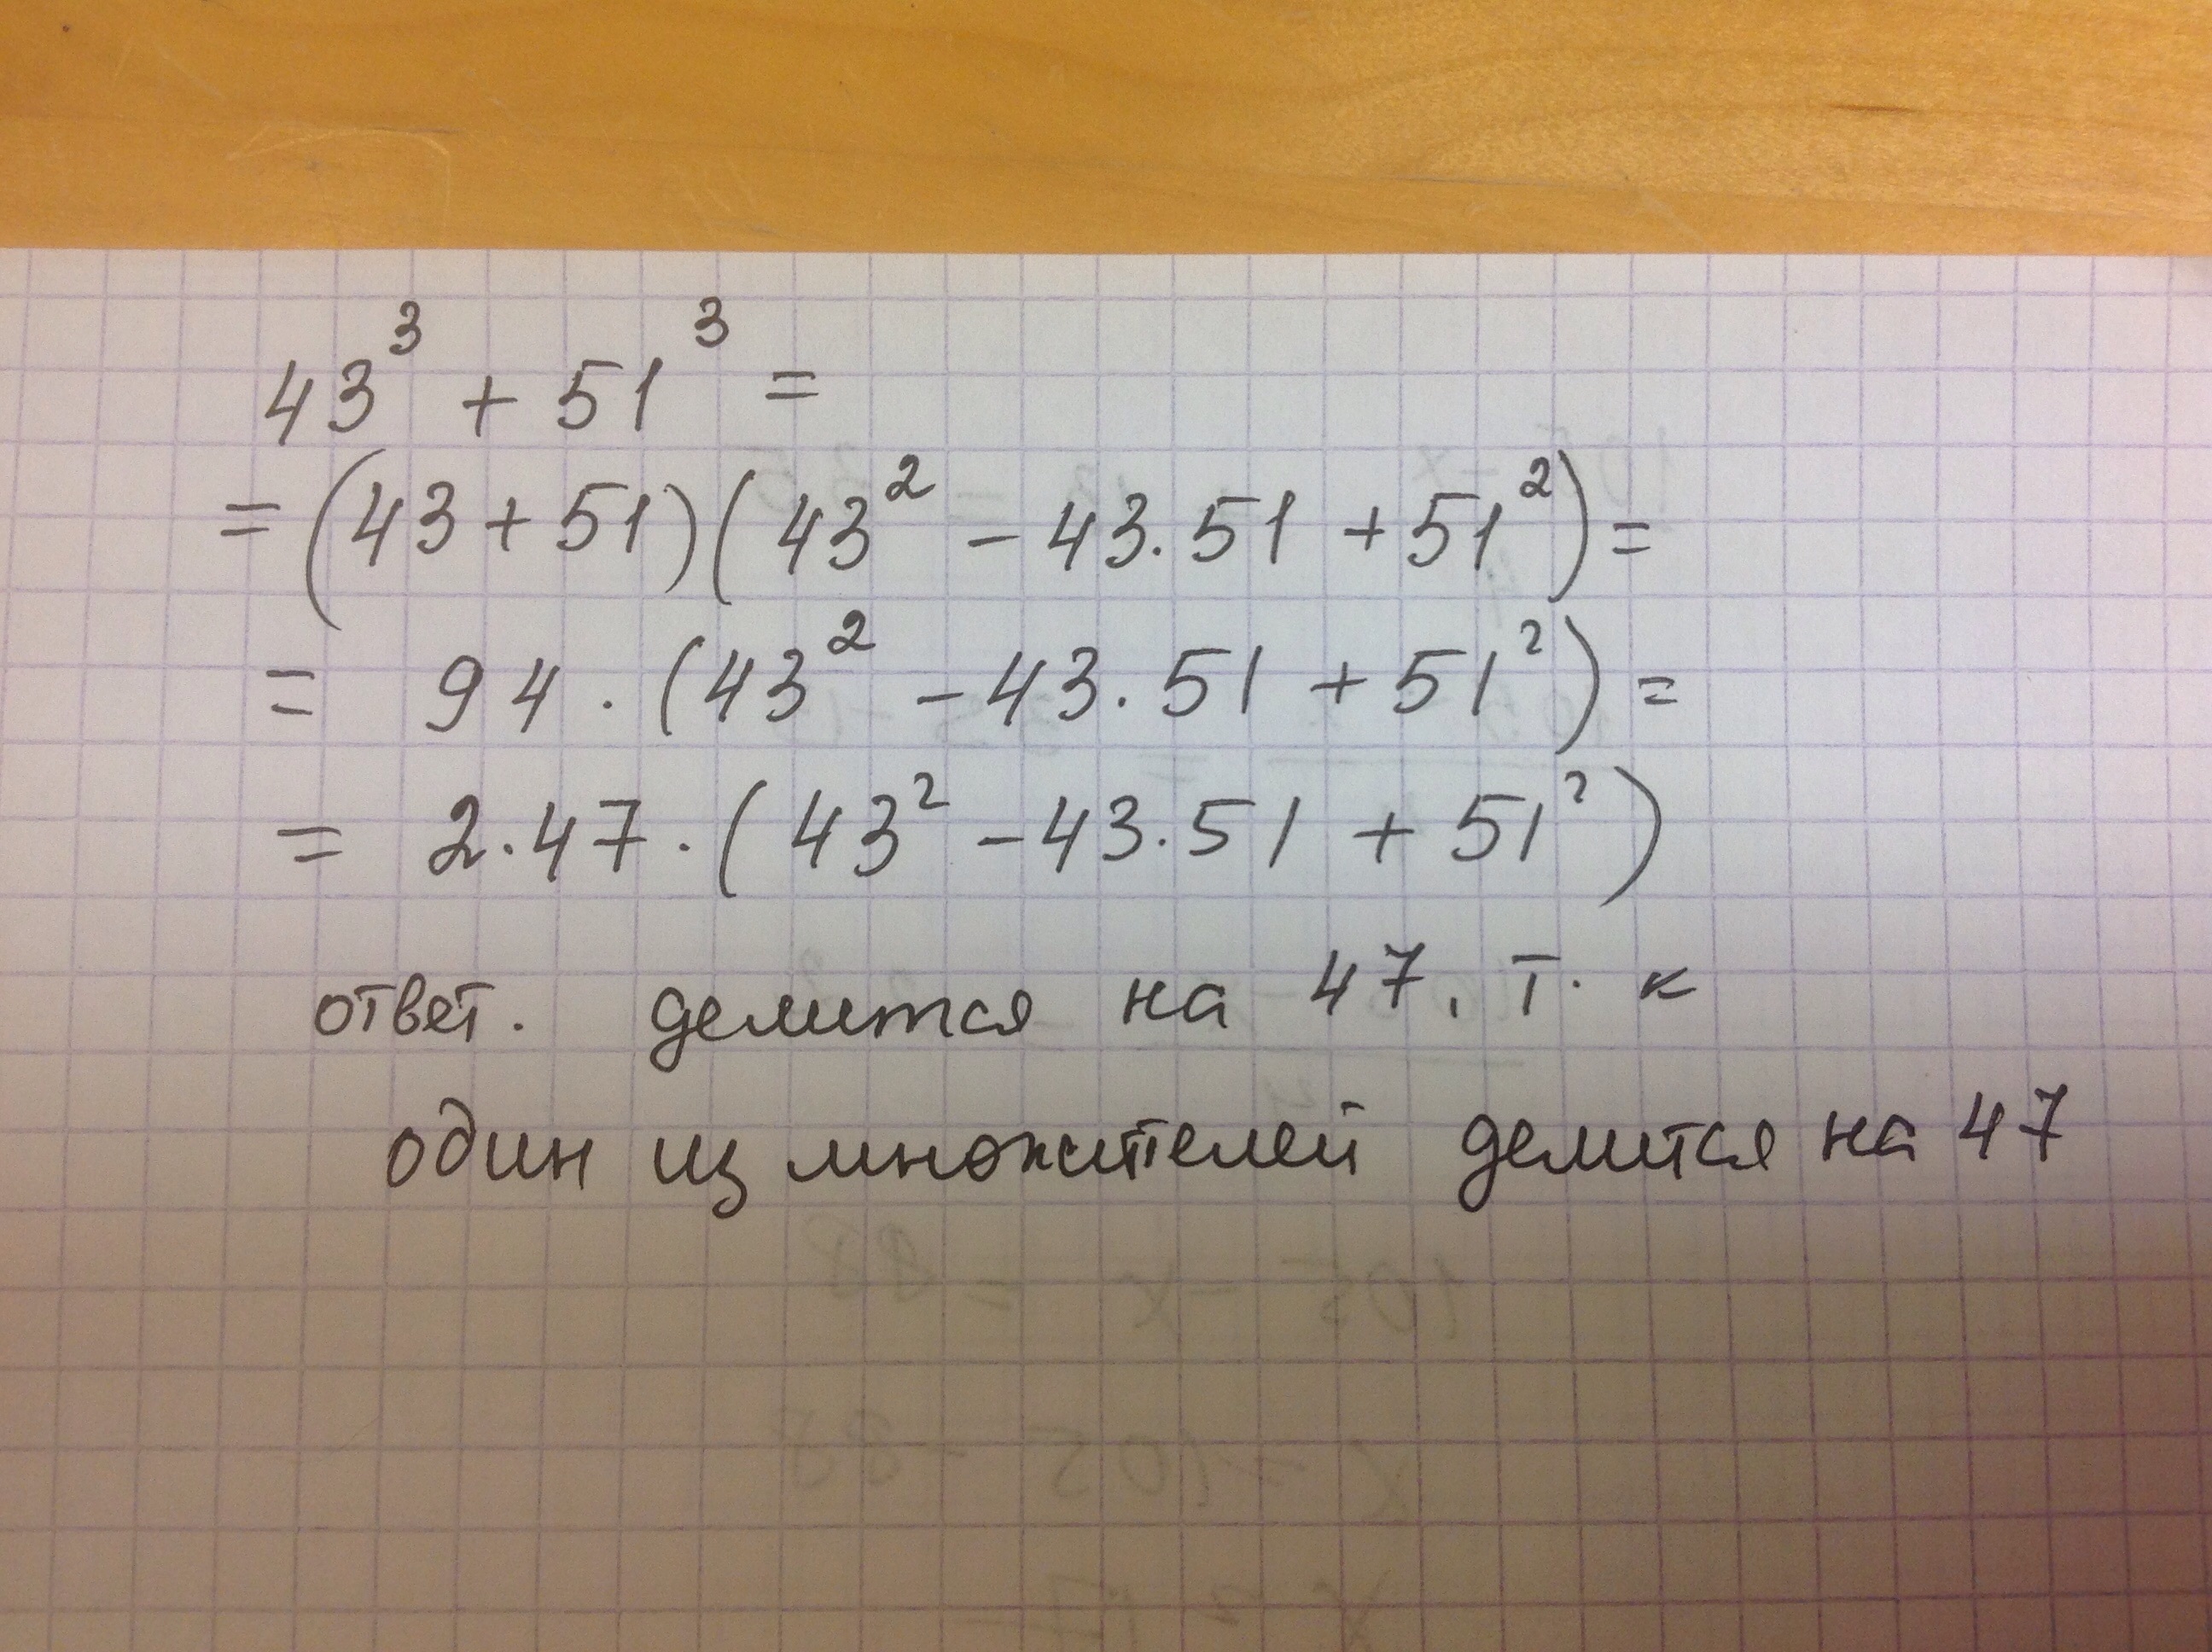 43³ + 51³ =
= (43 + 51)(43² - 43·51 + 51²) =
= 94 · (43² - 43·51 + 51²) =
= 2·47·(43² - 43·51 + 51²)
ответ. делится на 47, т. к
один из множителей делится на 47
105 - x = 88
x = 105 - 88
x = 17